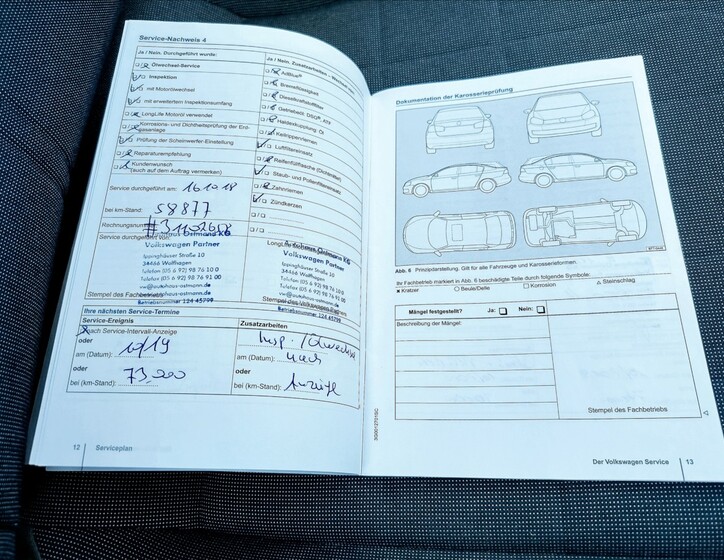 Service-Nachweis 4
Ja / Nein. Durchgeführt wurde:
Ölwechsel-Service
Inspektion
mit Motorölwechsel
mit erweitertem Inspektionsumfang
LongLife Motoröl verwendet
Korrosions- und Dichtheitsprüfung der Erd-
gasanlage
Prüfung der Scheinwerfer-Einstellung
Reparaturempfehlung
Kundenwunsch
(auch auf dem Auftrag vermerken)
Service durchgeführt am: 16.10.18
bei km-Stand: 58877
Rechnungsnum
Service durchgeführt von:
Volkswagen Partner
Ippinghäuser Straße 10
34466 Wolfhagen
Telefon (05 6 92) 98 76 10 0
Telefax (05 6 92) 98 76 91 00
vw@autohaus-ostmann.de
Betriebsnummer 124 45799
Stempel des Fachbetriebs
Ja / Nein. Zusatzarbeiten
AdBlue®
Bremsflüssigkeit
Dieselkraftstofffilter
Getriebeöl: DSG®, ATF
Haldexkupplung: Öl
Keilrippenriemen
Luftfiltereinsatz
Reifenfüllflasche (Dichtmittel)
Staub- und Pollenfiltereinsatz
Zahnriemen
Zündkerzen
Autohaus Ostmann KG
Volkswagen Partner
Ippinghäuser Straße 10
34466 Wolfhagen
Telefon (05 6 92) 98 76 10 0
Telefax (05 6 92) 98 76 91 00
vw@autohaus-ostmann.de
Betriebsnummer 124 45799
Ihre nächsten Service-Termine
Service-Ereignis
nach Service-Intervall-Anzeige
oder
am (Datum): 10/19
oder
bei (km-Stand): 73.000
Zusatzarbeiten
Insp. / Ölwechsel
am (Datum): nach
oder
bei (km-Stand): Anzeige
12 Serviceplan
Dokumentation der Karosserieprüfung
Abb. 6 Prinzipdarstellung. Gilt für alle Fahrzeuge und Karosserieformen.
Ihr Fachbetrieb markiert in Abb. 6 beschädigte Teile durch folgende Symbole:
Kratzer Beule/Delle Korrosion Steinschlag
Mängel festgestellt? Ja: Nein:
Beschreibung der Mängel:
Stempel des Fachbetriebs
Der Volkswagen Service 13